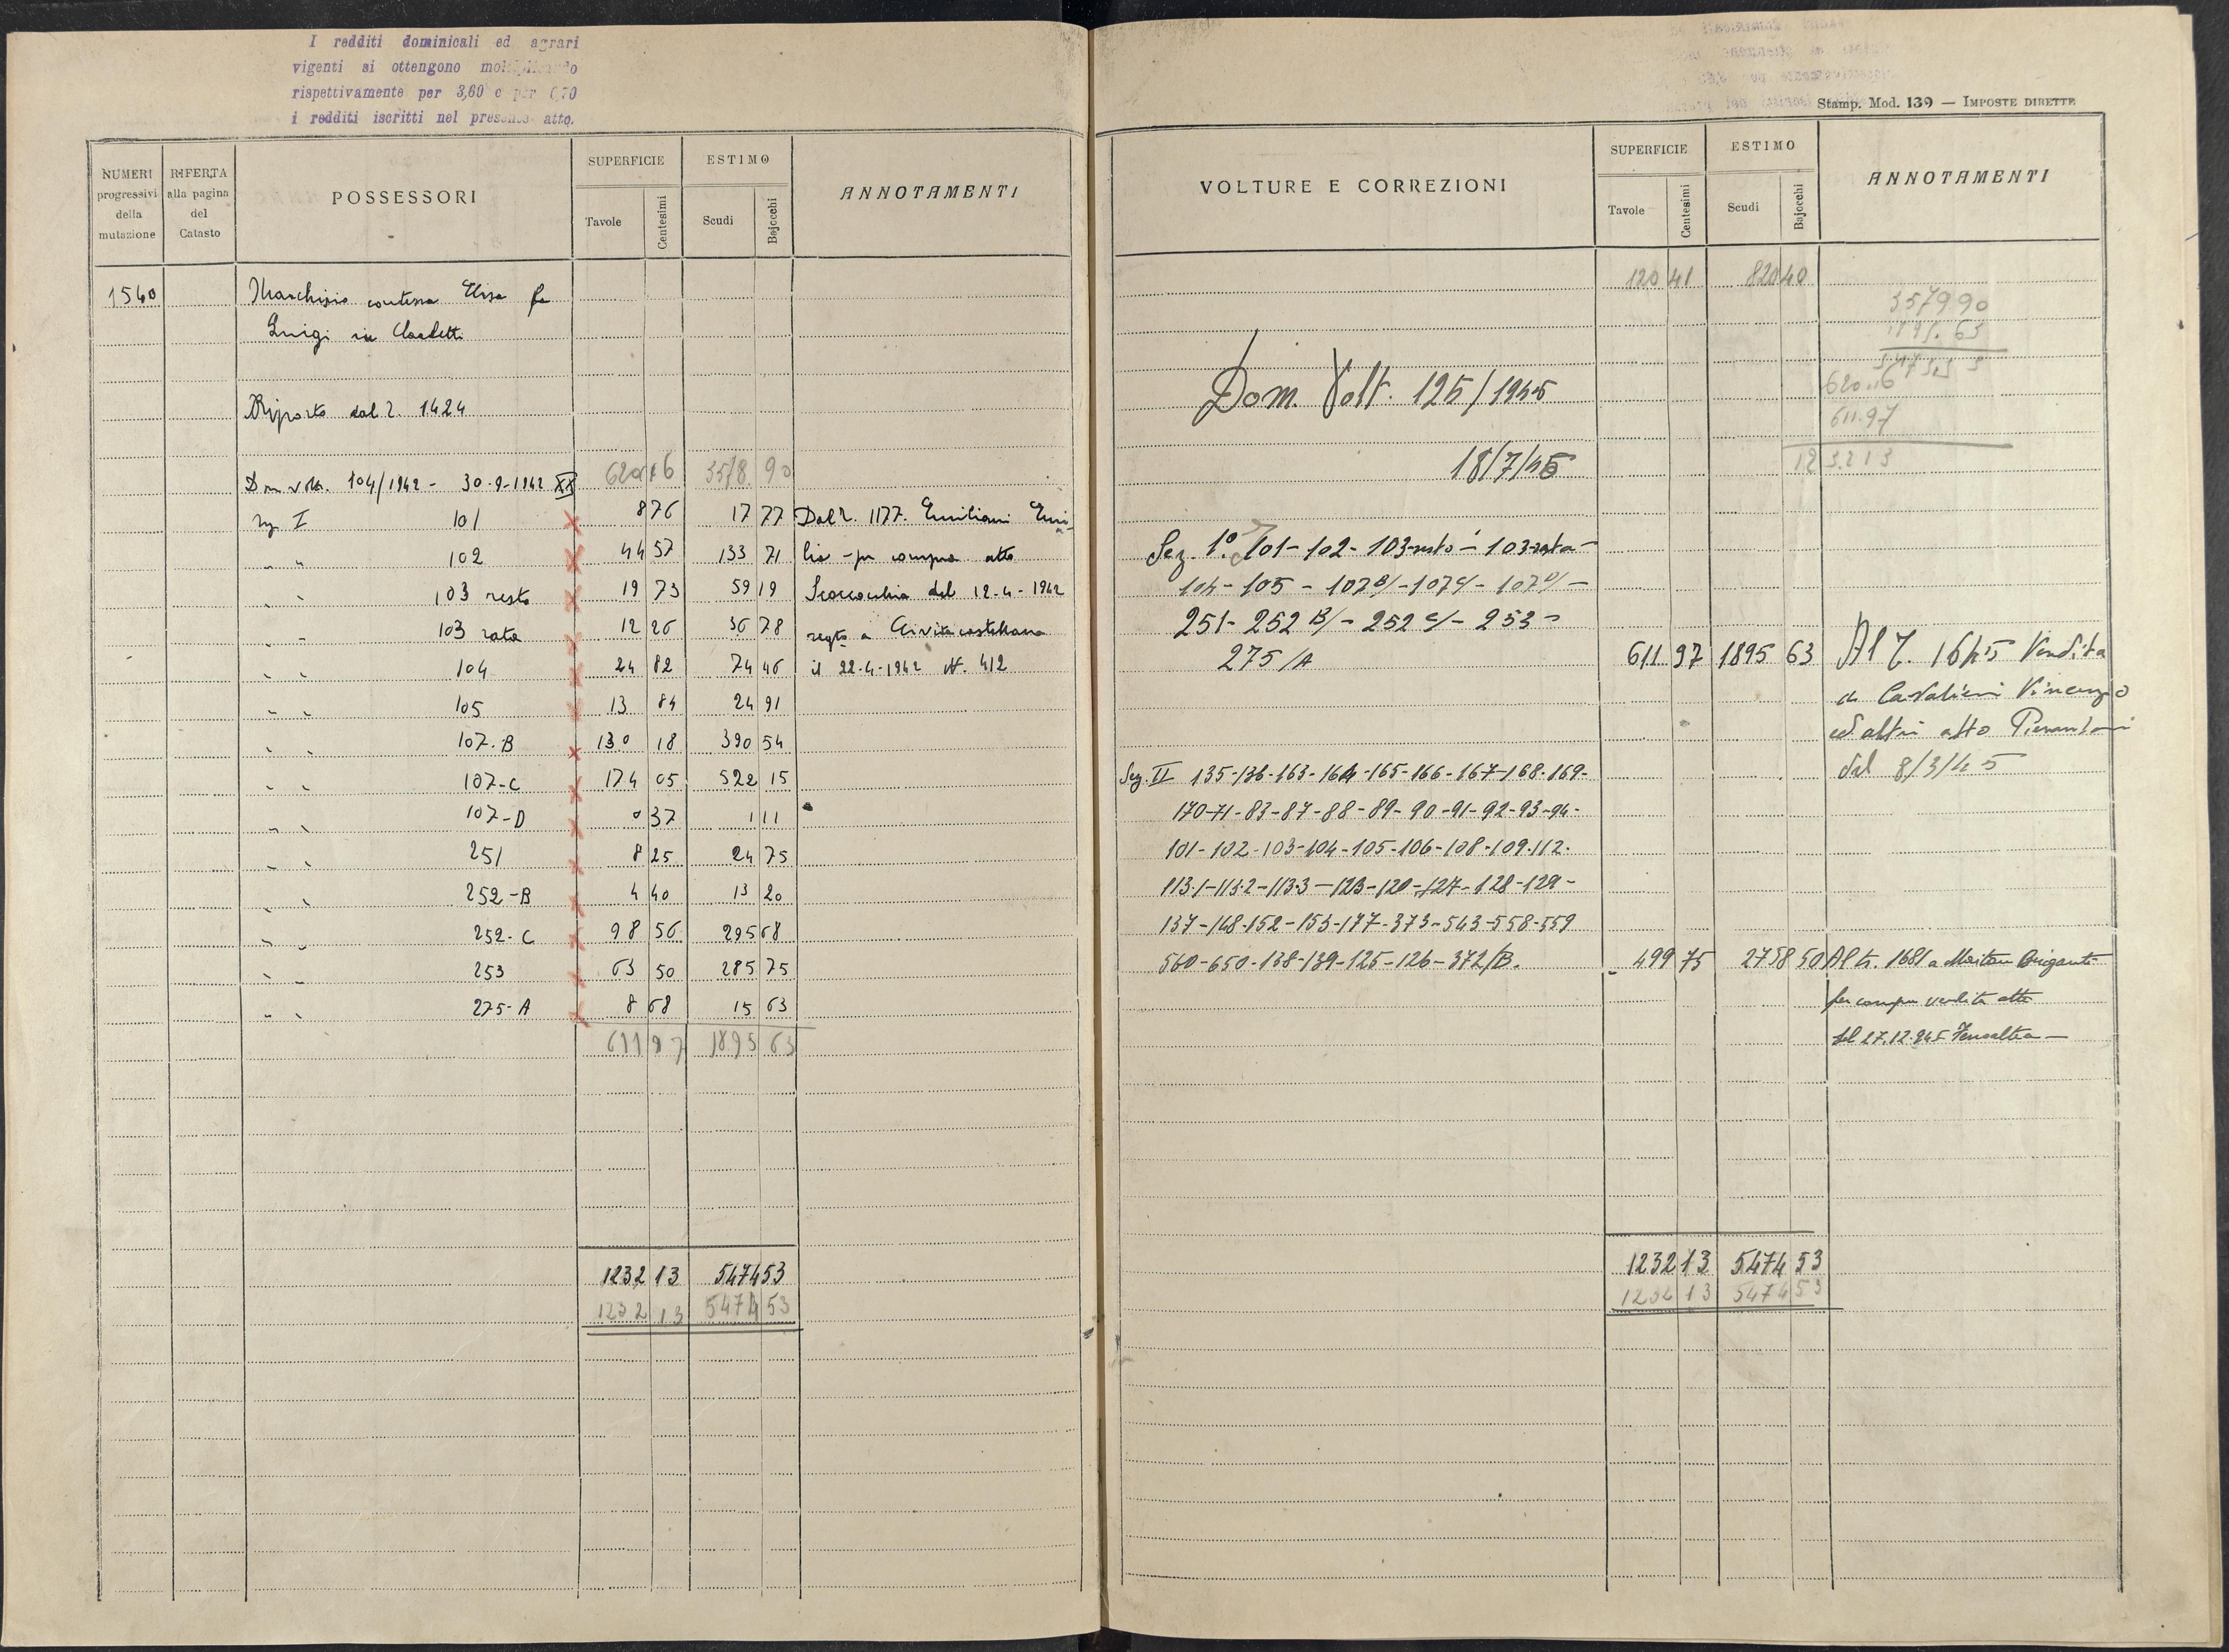 I redditi dominicali ed agrari
vigenti si ottengono
rispettivamente per 3,60 e per 0,70
i redditi iscritti nel presente atto.
NUMERI progressivi della mutazione
RIFERTA alla pagina del Catasto
POSSESSORI
SUPERFICIE
Tavole
Centesimi
ESTIMO
Scudi
Bajocchi
ANNOTAMENTI
1540 contessa Elisa fu
Luigi in
Riporto dal 2. 1424
620 16 3578 90
Dom. volt. 104/1942 - 30-9-1942 XX
Sez. I 101 x 8 76 17 77 Dal 2. 1177. Emiliani Emi-
" " 102 x 44 57 133 71 lia - per compra atto
" " 103 resto x 19 73 59 19 del 12-4-1942
" " 103 rata x 12 26 36 78 regto a Civitacastellana
" " 104 x 24 82 74 46 il 22-4-1942 N. 412
" " 105 x 13 84 24 91
" " 107-B x 130 18 390 54
" " 107-C x 174 05 522 15
" " 107-D x 0 37 1 11
" " 251 x 8 25 24 75
" " 252-B x 4 40 13 20
" " 252-C x 98 56 295 68
" " 253 x 63 50 285 75
" " 275-A x 8 68 15 63
611 97 1895 63
1232 13 5474 53
1232 13 5474 53
Stamp. Mod. 139 — IMPOSTE DIRETTE
VOLTURE E CORREZIONI
SUPERFICIE
Tavole
Centesimi
ESTIMO
Scudi
Bajocchi
ANNOTAMENTI
120 41 820 40
357990
1895.63
620.16
611.97
123213
Dom. Volt. 125/1945
18/7/45
Sez. 1º 101-102-103 resto-103 rata-
104-105-107B/-107C/-107D/-
251-252B/-252C/-253-
275/A 611 97 1895 63 Al 2. 1645 Vendita
a Cavalieri Vincenzo
ed altri atto Pierantoni
del 8/3/45
Sez. II 135-136-163-164-165-166-167-168-169-
170-71-83-87-88-89-90-91-92-93-94-
101-102-103-104-105-106-108-109-112-
113.1-113.2-113.3-123-120-127-128-129-
137-148-152-153-177-373-543-558-559
560-650-138-139-125-126-372/B. 499 75 2758 50 1681 a Brigante
per compra vendita atto
del 27.12.945
1232 13 5474 53
1232 13 5474 53